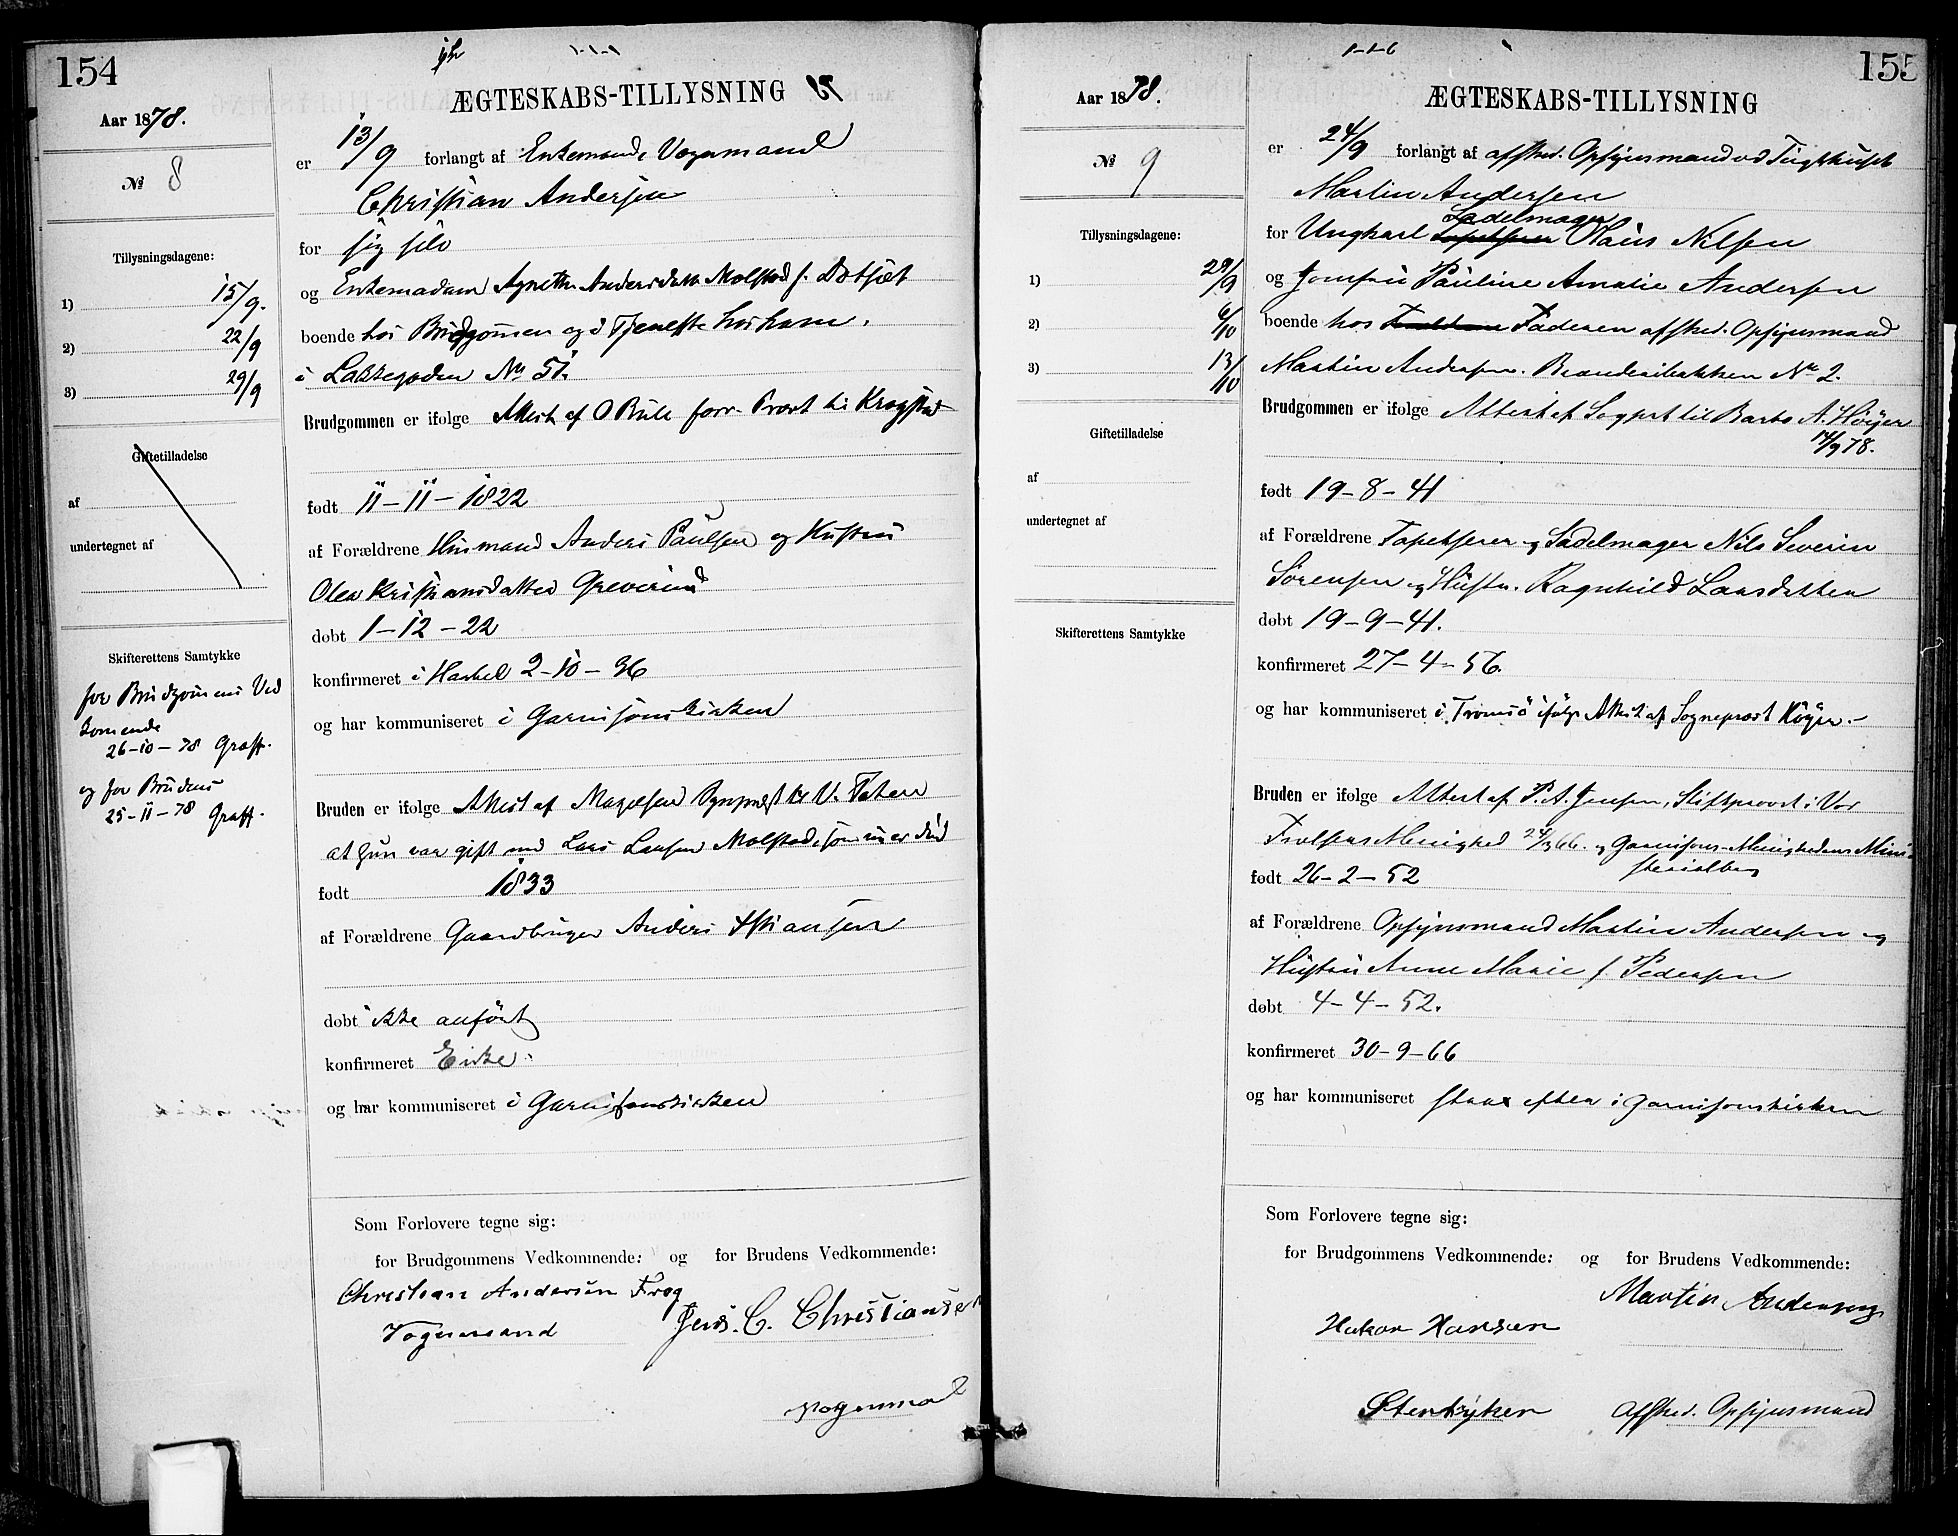 154
Aar 1878.
№ 8
Tillysningsdagene:
1) 15/9.
2) 22/9
3) 29/9
Giftetilladelse
af
undertegnet af
Skifterettens Samtykke
for Brudgomens Ved
kommende
26-10-78 Graff.
og for Brudens
25-11-78 Graff.
ÆGTESKABS-TILLYSNING
er 13/9 forlangt af Enkemand, Vognmand
Christian Andersen
for sig selv
og Enkemadam Agnethe Andersdatter Molstad f.
boende hos Brudgommen og i Tjeneste hos ham.
i Lakkegaden No 51.
Brudgommen er ifølge Attest af O Bull forr. Præst til Krogstad
født 11-11-1822
af Forældrene Husmand Anders Paulsen og Hustru
Olea Kristiansdatter Greverud
døbt 1-12-22
konfirmeret i 2-10-36
og har kommuniseret i Garnisonskirken
Bruden er ifølge Attest af Magelsen Sognepræst til V. Toten
at hun var gift med Lars Larsen Molstad, som nu er død
født 1833
af Forældrene Gaardbruger Anders
døbt ikke anført
konfirmeret
og har kommuniseret i Garnisonskirken
Som Forlovere tegne sig:
for Brudgommens Vedkommende: og for Brudens Vedkommende:
Christian Andersen Frog
Vognmand
Jens. C. Christiansen
Vognmand
155
Aar 1878.
№ 9
Tillysningsdagene:
1) 29/9
2) 6/10
3) 13/10
Giftetilladelse
af
undertegnet af
Skifterettens Samtykke
ÆGTESKABS-TILLYSNING
er 24/9 forlangt af afsked. Opsynsmand ved Tugthuset
Martin Andersen
Sadelmager
for Ungkarl Tapetserer Olaus Nilsen
og Jomfru Pauline Amalie Andersen
boende hos Faderen afsked. Opsynsmand
Martin Andersen. Brænderibakken No 2.
Brudgommen er ifølge Attest af Sogprst til Barbo A. Høyer
14/9 78.
født 19-8-41
af Forældrene Tapetserer og Sadelmager Nils Severin
Sørensen og Hustru. Ragnhild Larsdatter
døbt 19-9-41.
konfirmeret 27-4-56.
og har kommuniseret i Tromsø ifølge Attest af Sognepræst Høyer.
Bruden er ifølge Attest af P. A. Jensen, Stiftsprovst i Vor
Frelsers Menighed 66. og Garnisons-Menighedens Mini-
sterialbog
født 26-2-52
af Forældrene Opsynsmand Martin Andersen og
Hustru Anne Marie f. Pedersen
døbt 4-4-52.
konfirmeret 30-9-66
og har kommuniseret strax efter i Garnisonskirken
Som Forlovere tegne sig:
for Brudgommens Vedkommende: og for Brudens Vedkommende:
Hakon Hansen
Martin Andersen
Stentrykker
Afsked. Opsynsmand